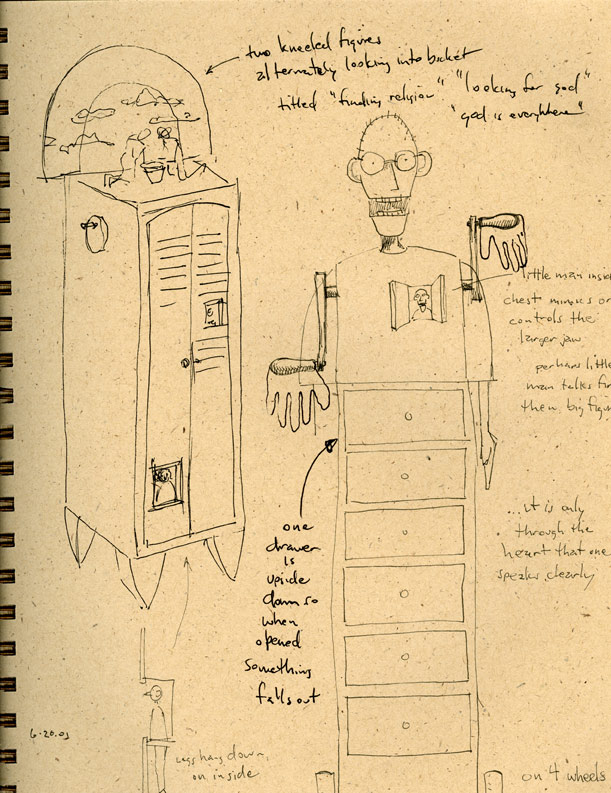 two kneeled figures
alternately looking into bucket
titled "finding religion" "looking for god"
"god is everywhere"
little man insid
chest mimics or
controls the
larger jaw
perhaps little
man talks firs
then big figu
...it is only
through the
heart that one
speaks clearly
one
drawer
is
upside
down so
when
opened
something
falls out
6-20.03
legs hang down,
on inside
on 4 wheels